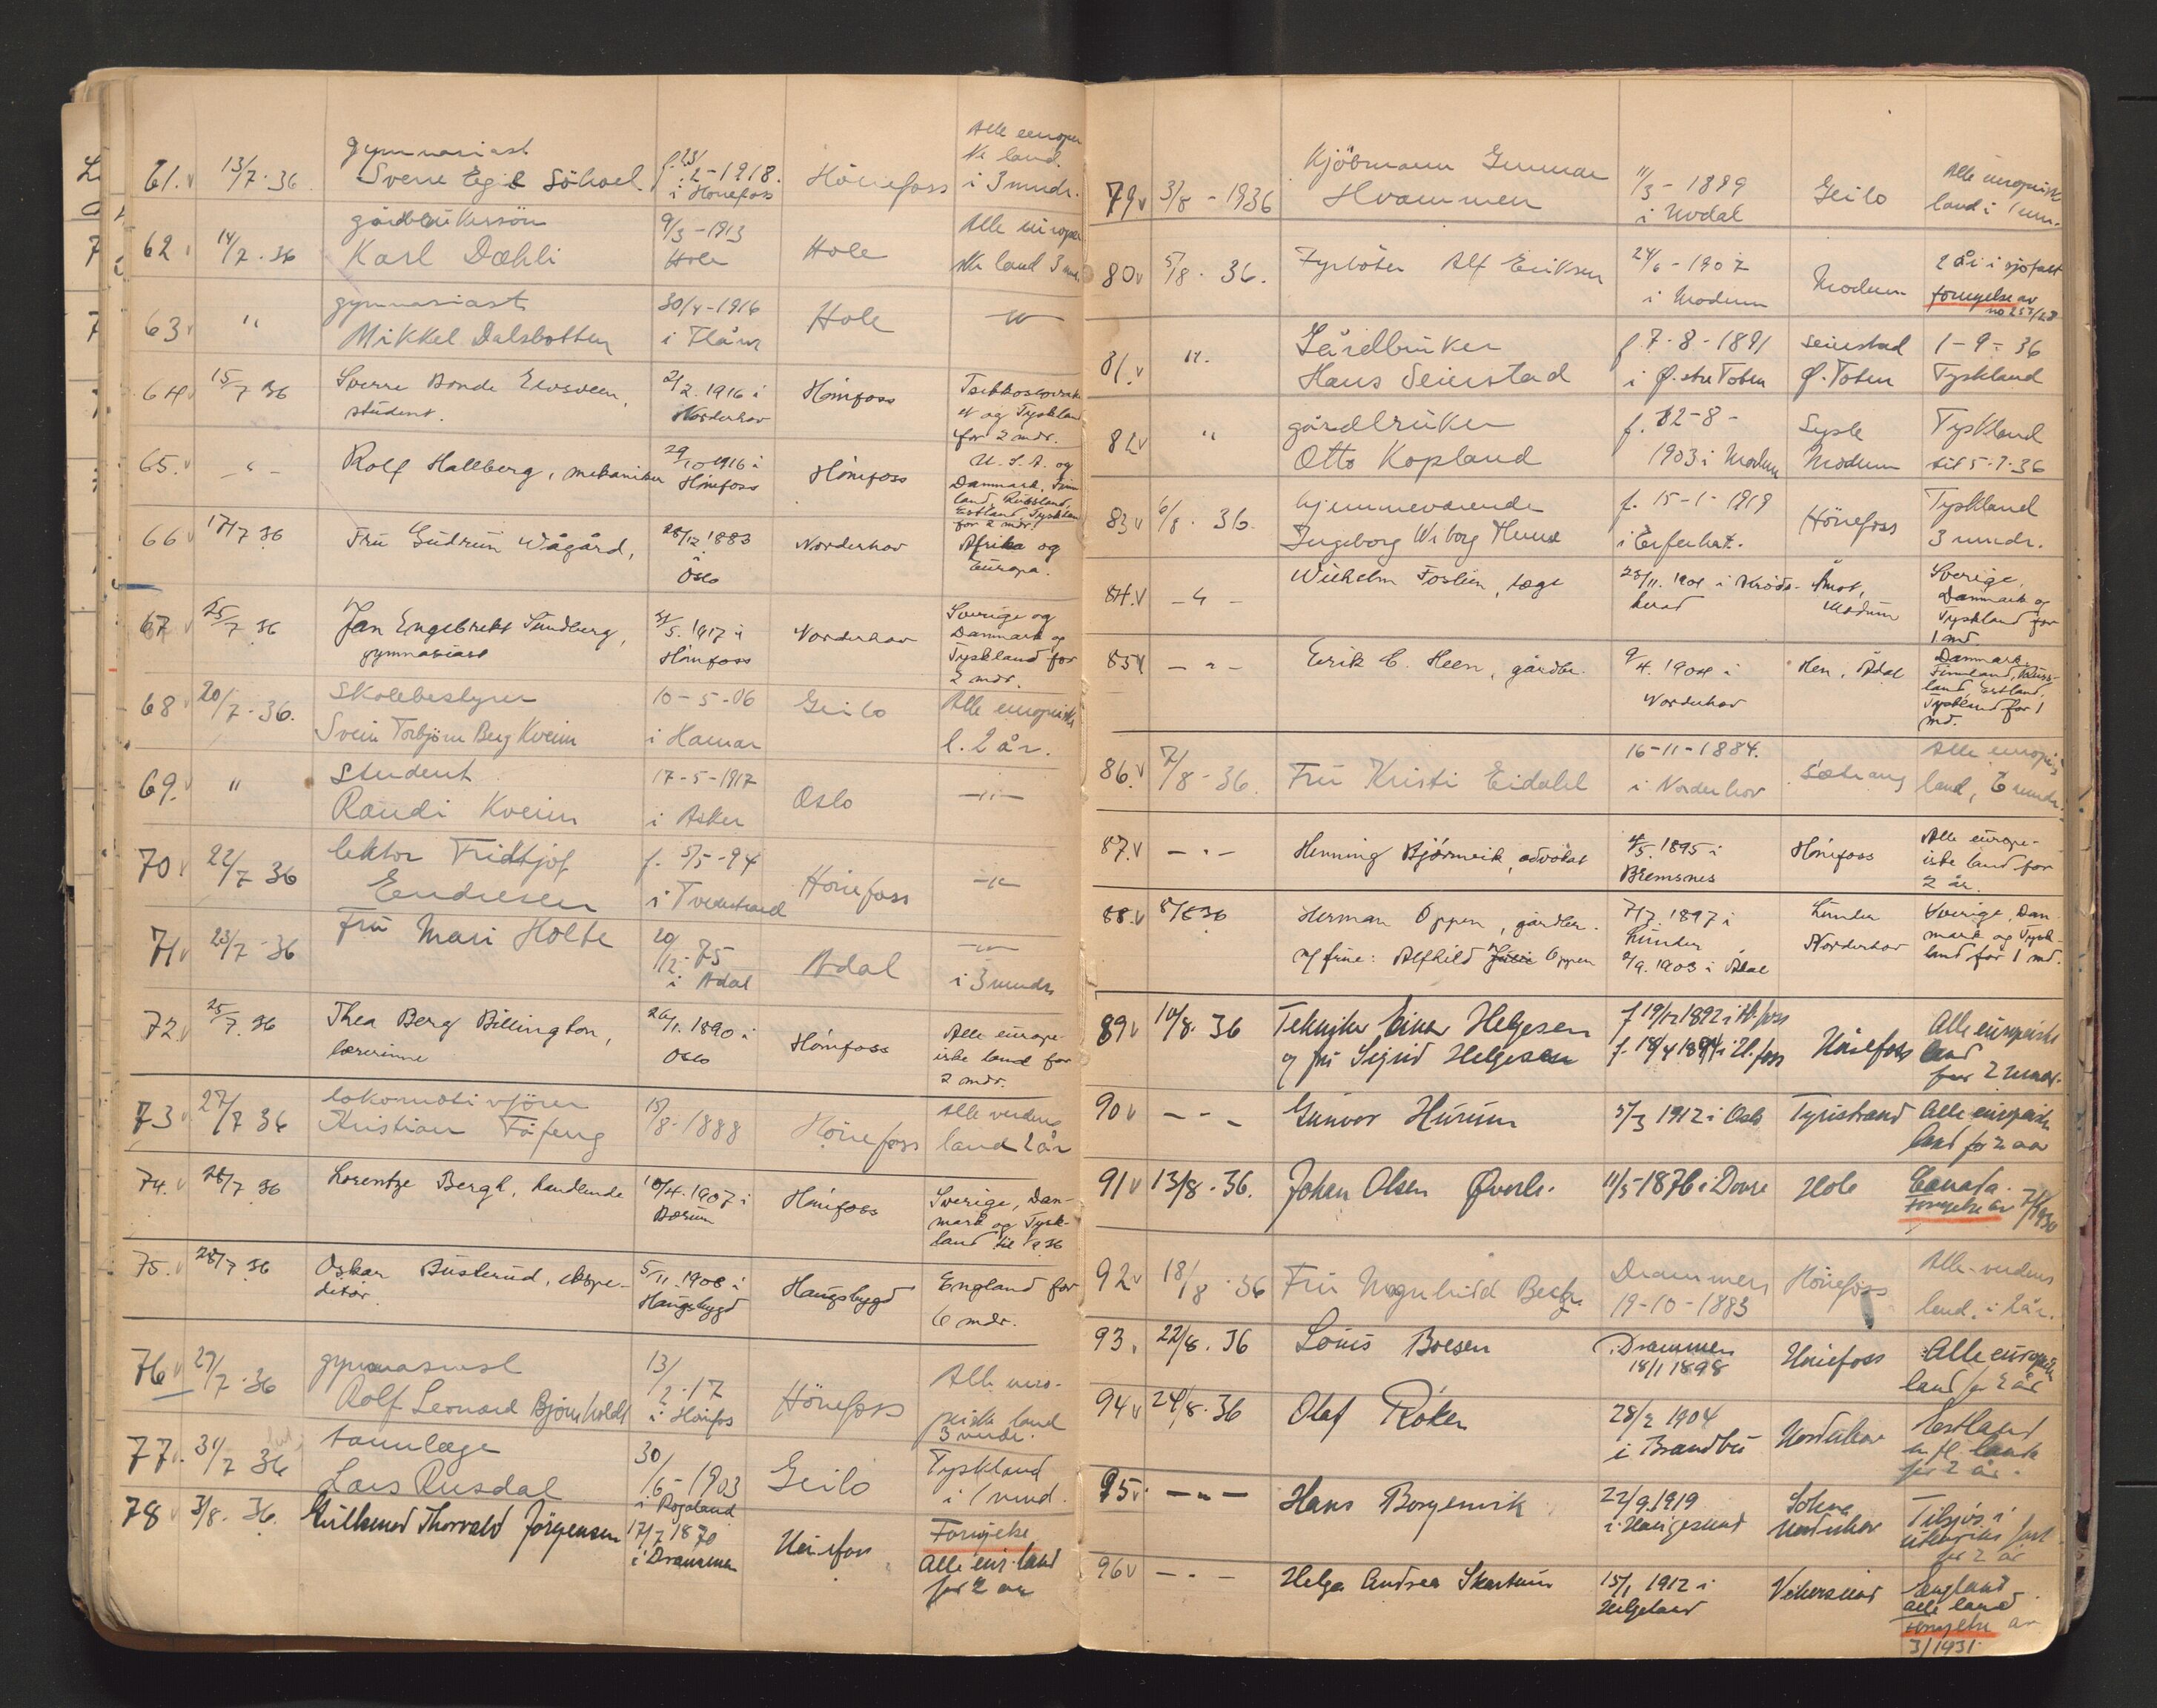 61. 13/7-36. gymnasiast f. 23/ Alle europei
Sverre Egil Söhoel 2-1918. Hönefoss ske land.
i Hönefoss i 3 mndr.
62 14/7-36 gårdbrukersön 9/3-1913 Hole Alle europei
Karl Dæhli Hole ske land 3 mdr.
63 " gymnasiast 30/4-1916 Hole —"—
Mikkel Dalsbotten i Flåm
64 15/7 36 Sverre Bonde 2/2. 1916 i Hönefoss Tsekkoslovaki
student. Norderhov et og Tyskland
for 2 mdr.
65. —"— Rolf Hallberg, mekaniker 29/10 1916 i Hönefoss U.S.A. og
Hönefoss Danmark, Finn
land, Russland,
Estland, Tyskland
for 2 mdr.
66 17/7 36 Fru Gudrun Wågård, 28/12 1883 Norderhov Afrika og
Oslo Europa.
67 25/7 36 Jan Engebrekt Sundberg, 31/5. 1917 i Norderhov Sverige og
gymnasiast Hönefoss Danmark og
Tyskland for
2 mdr.
68 20/7-36. Skolebestyrer 10-5-06 Geilo Alle europeiske
Svein Torbjörn Berg Kveim i Hamar l. 2 år.
69. " Student 17-5-1917 Oslo —"—
Randi Kveim i Asker
70 22/7 36 lektor Fridtjof f. 5/5-94 Hönefoss —"—
Endresen i Tvedestrand
71 23/7-36 Fru Mari Holte 20/12-75 Ådal —"—
i Ådal i 3 mndr
72. 25/7. 36 Thea Berg Billington, 26/1. 1890 i Hönefoss Alle europe-
lærerinne Oslo iske land for
2 mdr.
73 27/7 36 lokomotivförer 15/8-1888 Hönefoss Alle verdens
Kristian Fåfeng land 2 år
74. 28/7 36 Lorentze Bergh, handlende 10/4. 1907 i Hönefoss Sverige, Dan-
Bærum mark og Tysk-
land til 1/9 36
75. 28/7 36 Oskar Busterud, ekspe- 5/11. 1908 i Haugsbygd England for
ditør. Haugsbygd 6 mdr.
76 29/7-36 gymnasiast 13/ Hönefoss Alle euro-
Rolf Leonard Bjørnholdt 2-17 peiske land
i Hönefos 3 mndr.
77. 31/7 36 tannlæge 30/ Geilo Tyskland
Lars Rusdal 6-1903 i 1 mnd.
i Rogaland
78 3/8. 36. Thorvald Jörgensen 17/7 1870 Hönefoss Fornyelse
i Drammen Alle eur. land
for 2 år
79 3/8-1936 Kjöbmann Gunnar 11/3-1899 Geilo Alle europeisk
Hvammen i Uvdal land i 1 mn.
80 5/8. 36. Fyrböter Alf Eriksen 24/6-1907 Modum 2 år i sjöfart
i Modum fornyelse av
no 257/28
81. ". Gårdbruker f 7-8-1891 Seierstad 1-9-36
Hans Seierstad i Ö.stre Toten Ø. Toten Tyskland
82 " gårdbruker f. 12-8- Sysle Tyskland
Otto Kopland 1903 i Modum Modum
83 6/8. 36. hjemmeværende f. 15-1-1919 Hönefoss Tyskland
Ingeborg Wiborg i Erfurt. 3 mndr.
84. —"— Wilhelm Foslien, læge 28/11. 1901 i Kröds- Åmot, Sverige,
herad Modum Danmark og
Tyskland for
1 md
85 —"— Eirik C. Heen, gårdbr. 9/4. 1904 i Hen, Ådal Danmark
Norderhov Finnland, Russ-
land, Estland,
Tyskland for 1
md.
86. 7/8-36. Fru Kristi Eidahl 16-11-1884. Alle europei
i Norderhov land, 6 mndr.
87. —"— Henning Björnvik, advokat 4/5. 1895 i Hönefoss Alle europe-
Bremsnes iske land for
2 år.
88. 8/8 36 Herman Oppen, gårdbr. 7/7. 1897 i Lunder Sverige, Dan
Lunder mark og Tysk-
m/ frue: Alfhild Oppen 2/9. 1903 i Ådal Norderhov land for 1 md.
89 10/8. 36 Tekniker Einar Helgesen f 19/12 1892 i H.foss Hönefoss Alle europeiske
og fru Sigrid Helgesen f. 18/4 1894 i H.foss land
for 2 mndr.
90 —"— Gunvor Hurum 5/3 1912 i Oslo Tyristrand Alle europeiske
land for 2 aar
91 13/8. 36. Johan Olsen Øverli. 11/5-1876 i Dovre Hole Canada.
Fornyelse av 1930
92 18/8-36 Fru Magnhild Drammen Hönefoss Alle-verdens
19-10-1883 land. i 2 år.
93. 22/8. 36 Louis Boesen i Drammen Hönefoss Alle europeiske
18/1 1898 land for 2 år
94 24/8. 36 Olaf Röken 28/2 1904 Norderhov Estland
i Brandbu m. fl. lande
for 2 år.
95. —"— Hans Borgenvik 22/9. 1919 Sokna Tilsjös i
i Haugesund Norderhov utenriks fart
for 2 år
96 —"— Helga Andrea Skartum 15/1 1912 i Vikersund England
Helgeland alle land
fornyelse av
3/1931.